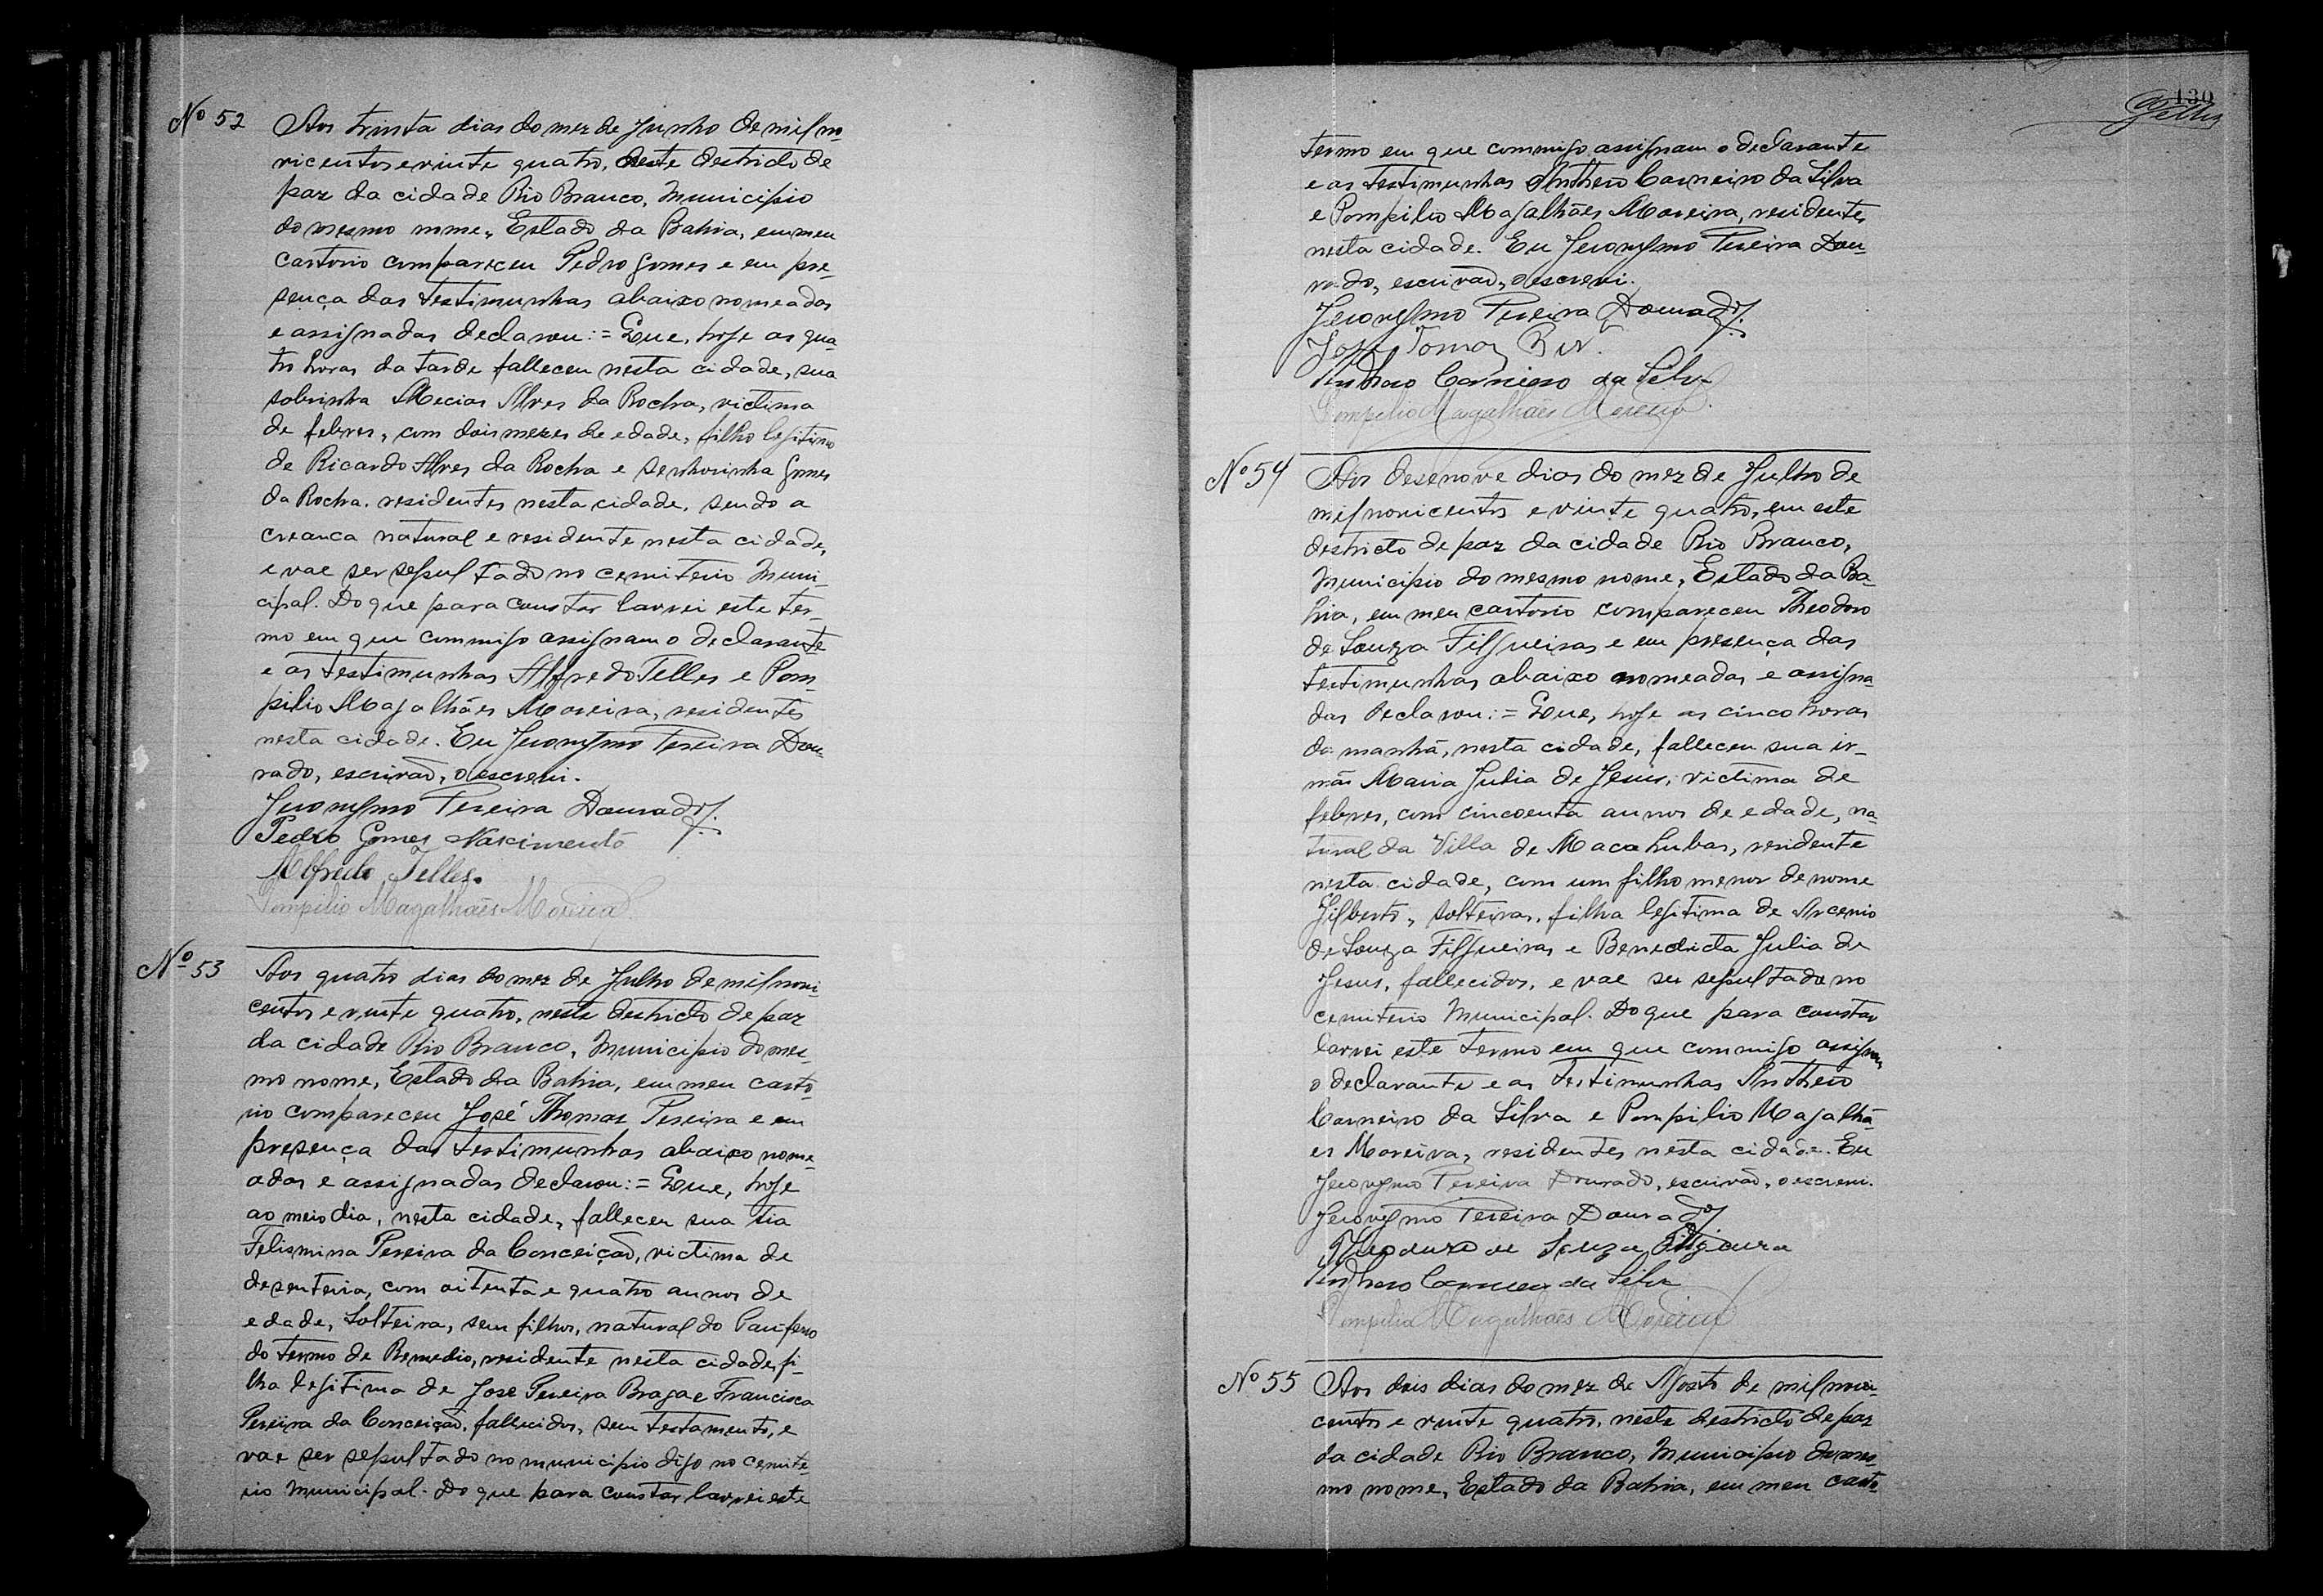 Nº 52
Aos trinta dias do mez de Junho de mil no
vicentos e vinte quatro, neste destricto de
paz da cidade Rio Branco, Municipio
do mesmo nome, Estado da Bahia, em meu
cartorio compareceu Pedro Gomes e em pre-
sença das testimunhas abaixo nomeadas
e assignadas declarou: = Que, hoje as qua-
tro horas da tarde falleceu nesta cidade, sua
sobrinha Mecias Alves da Rocha, victima
de febres, com dois mezes de edade, filho legitimo
de Ricardo Alves da Rocha e Senhorinha Gomes
da Rocha, residentes nesta cidade, sendo a
creanca natural e residente nesta cidade,
e vae ser sepultado no cemiterio Muni-
cipal. Do que para constar lavrei este ter-
mo em que commigo assignam o declarante
e as testimunhas Alfredo Telles e Pom-
pilio Magalhães Moreira, residentes
nesta cidade. Eu Jeronymo Pereira Dou-
rado, escrivaõ, o escrevi.
Jeronymo Pereira Dourado
Pedro Gomes Nascimento
Alfredo Telles.
Pompilio Magalhães Moreira
Nº 53
Aos quatro dias do mez de Julho de mil novi-
centos e vinte quatro, neste destricto de paz
da cidade Rio Branco, Municipio do mes-
mo nome, Estado da Bahia, em meu carto-
rio compareceu José Thomaz Pereira e em
presença das testimunhas abaixo nome-
adas e assignadas declarou: = Que, hoje
ao meio dia, nesta cidade, falleceu sua tia
Felismina Pereira da Conceiçaõ, victima de
desenteria, com oitenta e quatro annos de
edade, Solteira, sem filhos, natural do
do termo de Remedio, residente nesta cidade, fi-
lha legitima de José Pereira Braga e Francisca
Pereira da Conceiçaõ, fallecidos, sem testamento, e
vae ser sepultado no municipio digo no cemite-
rio Municipal. Do que para constar lavrei este
130
Telles
termo em que commigo assignam o declarante
e as testimunhas Anthero Carneiro da Silva
e Pompilio Magalhães Moreira, residentes
nesta cidade. Eu Jeronymo Pereira Dou-
rado, escrivaõ, o escrevi.
Jeronymo Pereira Dourado
José Tomaz
Anthero Carneiro da Silva
Pompilio Magalhães Moreira
Nº 54
Aos desenove dias do mez de Julho de
mil novicentos e vinte quatro, em este
destricto de paz da cidade Rio Branco,
Municipio do mesmo nome, Estado da Ba-
hia, em meu cartorio compareceu Theodoro
de Souza Filgueiras e em presença das
testimunhas abaixo nomeadas e assigna-
das declarou: = Que, hoje as cinco horas
da manhã, nesta cidade, falleceu sua ir-
mãs Maria Julia de Jesus, victima de
febres, com cincoenta annos de edade, na-
tural da Villa de Macahubas, residente
nesta cidade, com um filho menor de nome
Gilberto, solteiras, filha legitima de Arcenio
de Souza Filgueiras e Benedicta Julia de
Jesus, fallecidos, e vae ser sepultado no
cemiterio Municipal. Do que para constar
lavrei este termo em que commigo assignam
o declarante e as testimunhas Anthero
Carneiro da Silva e Pompilio Magalhã-
es Moreira, residentes nesta cidade. Eu
Jeronymo Pereira Dourado, escrivaõ, o escrevi.
Jeronymo Pereira Dourado
de Souza
Anthero Carneiro da Silva
Pompilio Magalhães Moreira
Nº 55
Aos dois dias do mez de Agosto de mil novi-
centos e vinte quatro, neste destricto de paz
da cidade Rio Branco, Municipio do mes-
mo nome, Estado da Bahia, em meu carto-